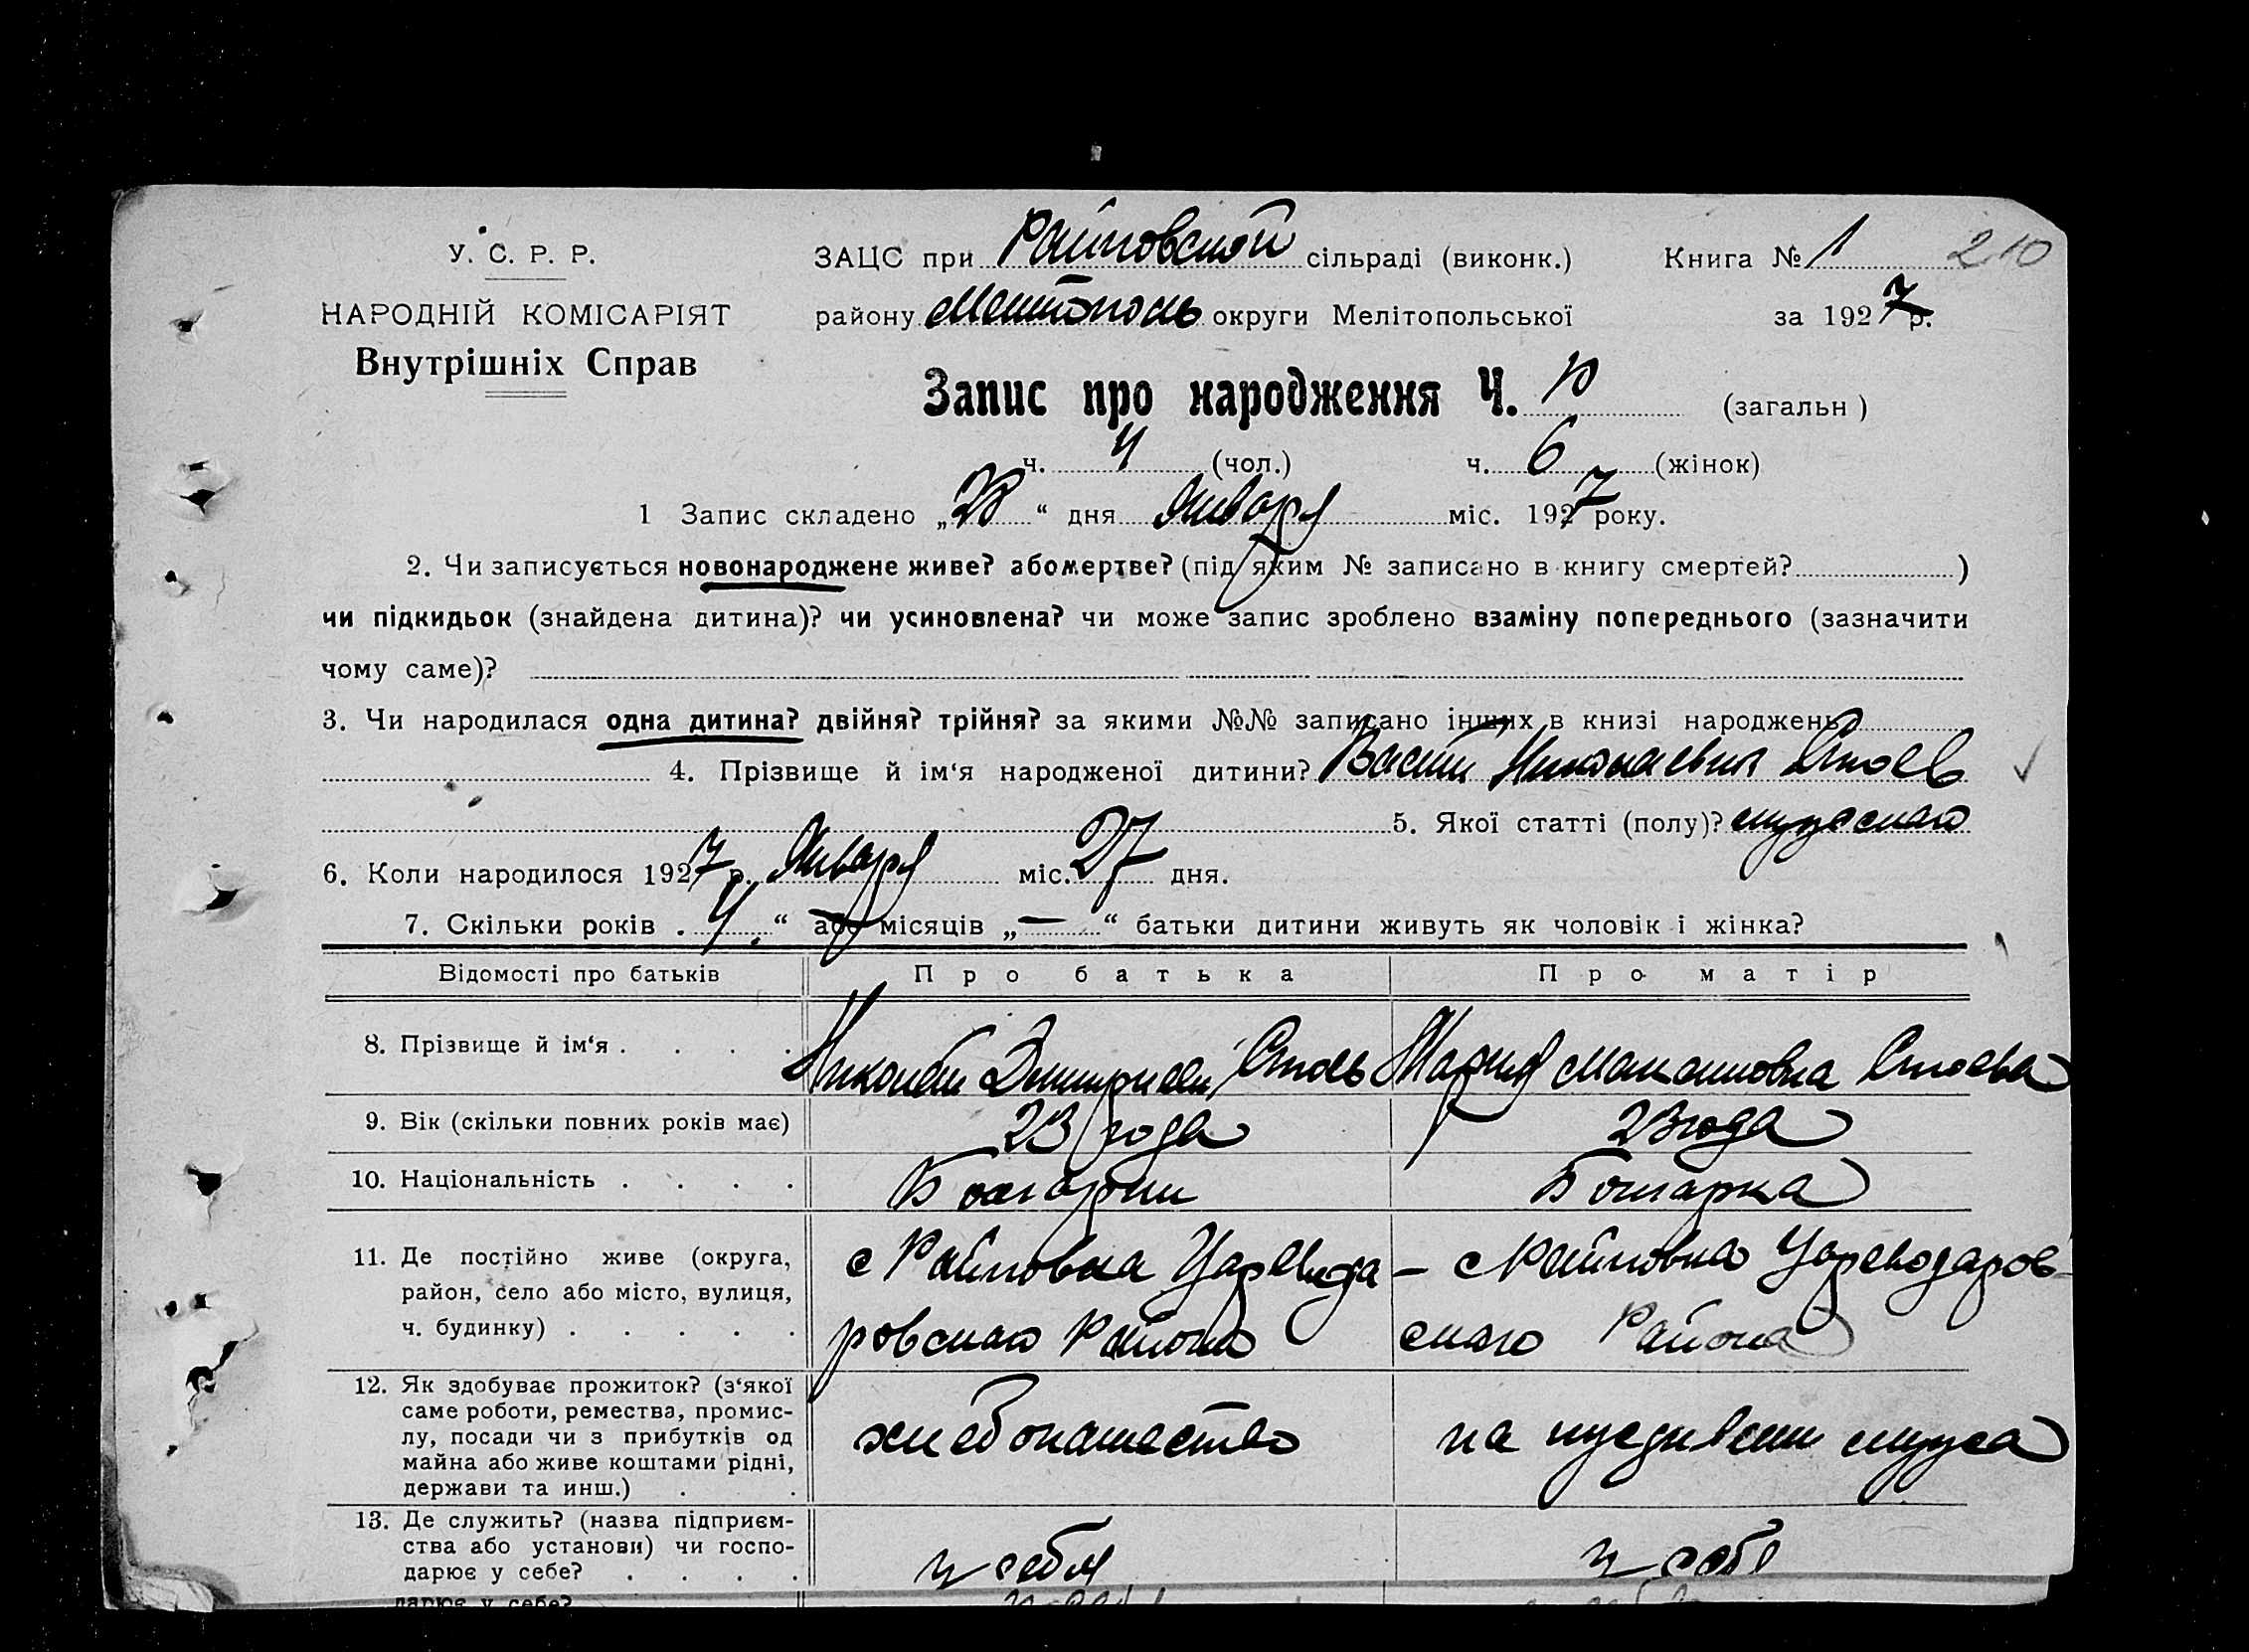 У. С. Р. Р.
НАРОДНІЙ КОМІСАРІЯТ
Внутрішніх Справ
ЗАЦС при Райновской сільраді (виконк.) Книга № 1 210
району Мелитополь округи Мелітопольської за 1927 р.
Запис про народження Ч. 10 (загальн)
ч. 4 (чол.) ч. 6 (жінок)
1 Запис складено „28“ дня Января міс. 1927 року.
2. Чи записується новонароджене живе? або мертве? (під яким № записано в книгу смертей? )
чи підкидьок (знайдена дитина)? чи усиновлена? чи може запис зроблено взаміну попереднього (зазначити
чому саме)?
3. Чи народилася одна дитина? двійня? трійня? за якими №№ записано інших в книзі народжень?
4. Прізвище й ім‘я народженої дитини? Василий Николаевич Стоев
5. Якої статті (полу)? мужскаго
6. Коли народилося 1927 р. Января міс. 27 дня.
7. Скільки років „4“ або місяців „—“ батьки дитини живуть як чоловік і жінка?
Відомості про батьків Про батька Про матір
8. Прізвище й ім‘я . . . . Николай Стоев Мария Стоева
9. Вік (скільки повних років має) 23 года 23 года
10. Національність . . . . Болгарин Болгарка
11. Де постійно живе (округа,
район, село або місто, вулиця,
ч. будинку) . . . . .
с Райновка Цареводаровскаго Района
с Райновка Цареводаров-
скаго Района
12. Як здобуває прожиток? (з‘якої
саме роботи, ремества, промис-
лу, посади чи з прибутків од
майна або живе коштами рідні,
держави та инш.) . .
хлебопашество
на иждивении мужа
13. Де служить? (назва підприєм-
ства або установи) чи госпо-
дарює у себе? . . . .
у себя
у себя
дарює у себе?